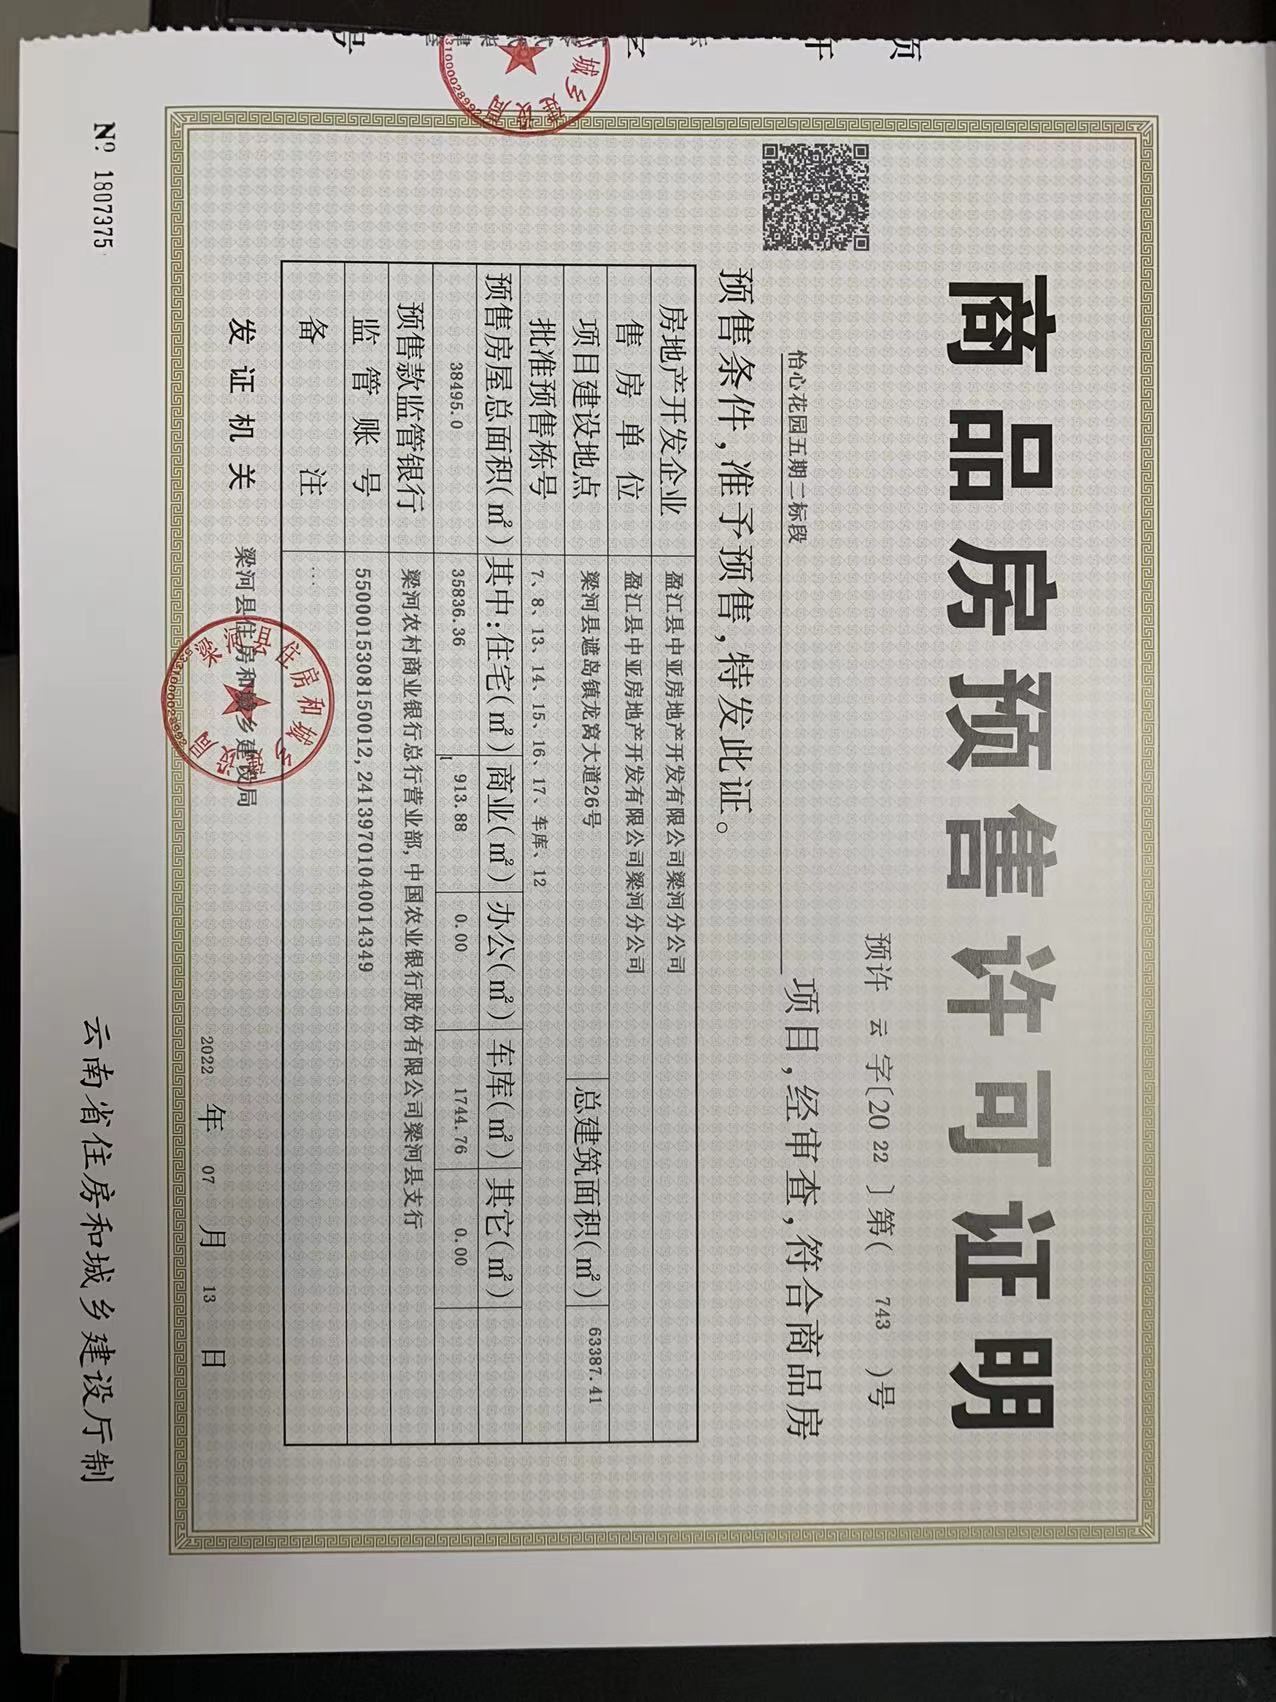 商品房预售许可证明
预许 云 字〔2022〕第( 743 )号
怡心花园五期二标段 项目,经审查,符合商品房
预售条件,准予预售,特发此证。
房地产开发企业 盈江县中亚房地产开发有限公司梁河分公司
售房单位 盈江县中亚房地产开发有限公司梁河分公司
项目建设地点 梁河县遮岛镇龙窝大道26号 总建筑面积(㎡) 63387.41
批准预售栋号 7、8、13、14、15、16、17、车库、12
预售房屋总面积(㎡) 其中:住宅(㎡) 商业(㎡) 办公(㎡) 车库(㎡) 其它(㎡)
38495.0 35836.36 913.88 0.00 1744.76 0.00
预售款监管银行 梁河农村商业银行总行营业部,中国农业银行股份有限公司梁河县支行
监管账号 5500015308150012,24139701040014349
备注 ....
发证机关 梁河县住房和城乡建设局
梁河县住房和城乡建设局
2022 年 07 月 13 日
№ 1807375 云南省住房和城乡建设厅制